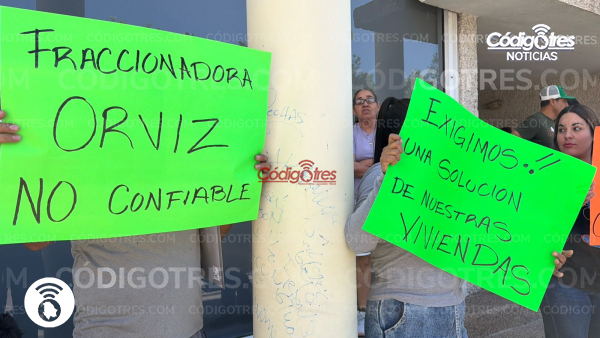 FRACCIONADORA
ORVIZ
NO CONFIABLE
EXIGIMOS..!!
UNA SOLUCIÓN
DE NUESTRAS
VIVIENDAS
CódigOtres
NOTICIAS
CódigOtres
CÓDIGOTRES.COM